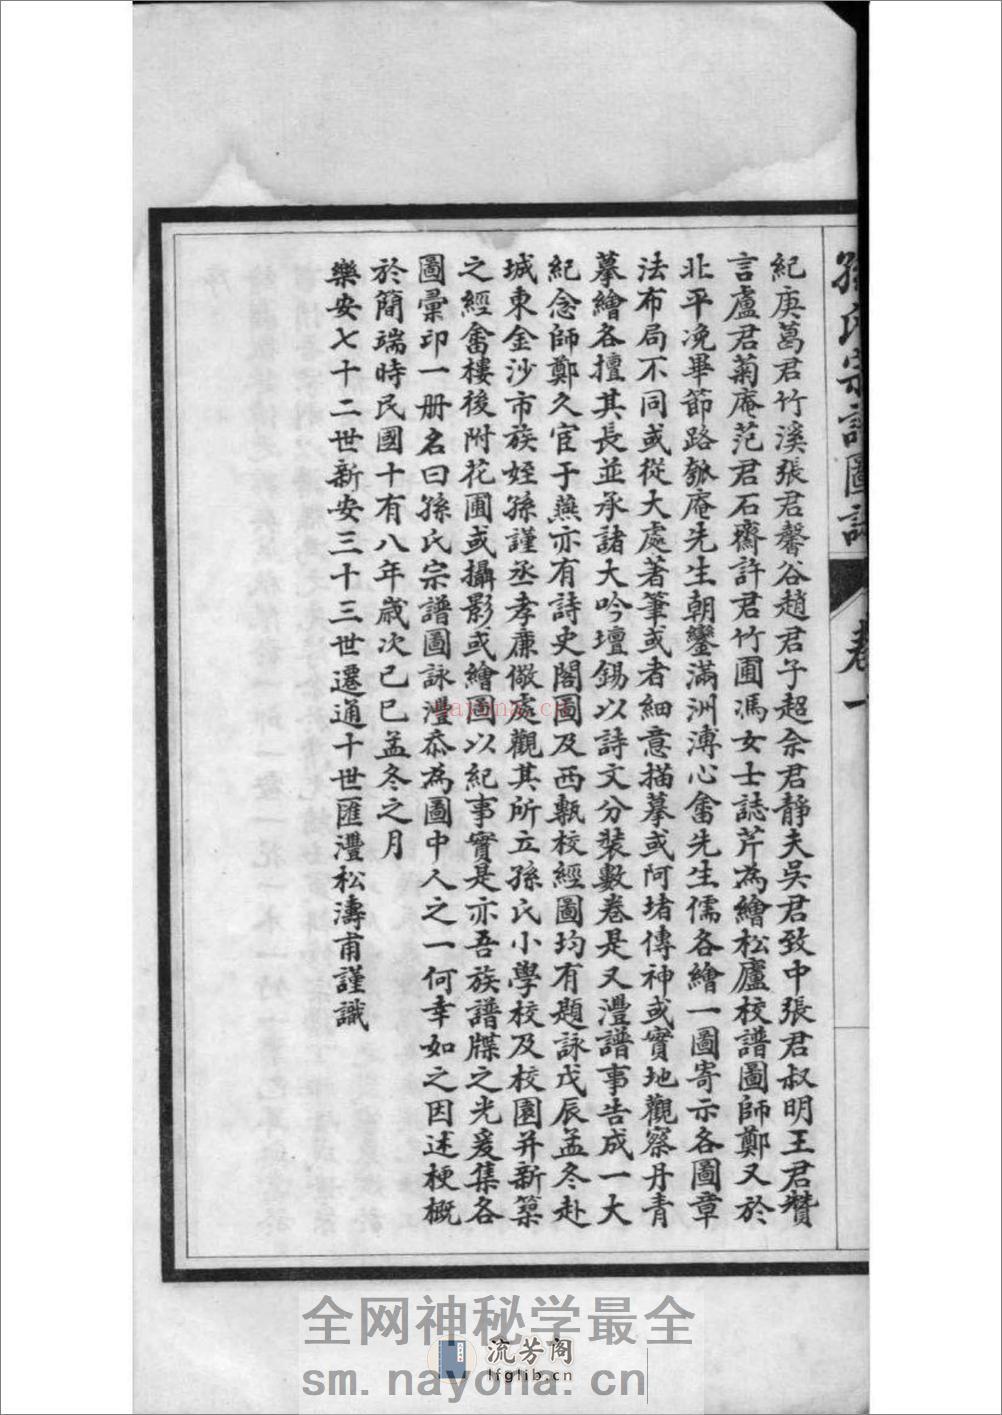 孫氏宗譜圖詠
卷一
紀庚葛君竹溪張君馨谷趙君子超佘君靜夫吳君致中張君叔明王君贊
言盧君菊庵范君石齋許君竹圃馮女士誌芹為繪松廬校譜圖師鄭又於
北平浼畢節路瓠庵先生朝鑾滿洲溥心畬先生儒各繪一圖寄示各圖章
法布局不同或從大處著筆或者細意描摹或阿堵傳神或實地觀察丹青
摹繪各擅其長並承諸大吟壇錫以詩文分裝數卷是又灃譜事告成一大
紀念師鄭久宦于燕亦有詩史閣圖及西甎校經圖均有題詠戊辰孟冬赴
城東金沙市族姪孫謹丞孝廉儆處觀其所立孫氏小學校及校園并新築
之經畬樓後附花圃或攝影或繪圖以紀事實是亦吾族譜牒之光爰集各
圖彙印一册名曰孫氏宗譜圖詠灃忝為圖中人之一何幸如之因述梗概
於簡端時民國十有八年歲次己巳孟冬之月
樂安七十二世新安三十三世遷通十世匯灃松濤甫謹識
nayona.cn
全网神秘学最全
流芳阁
lfglib.cn
sm.nayona.cn